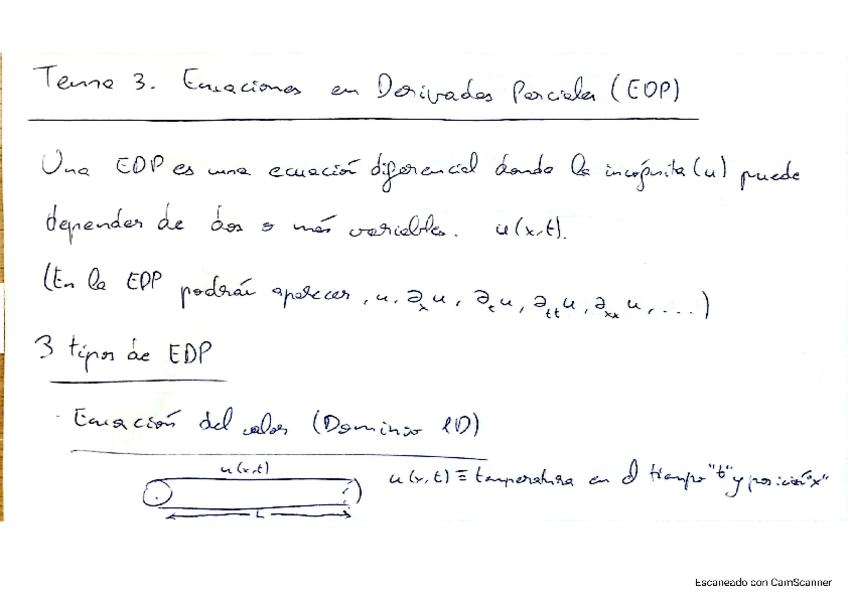 Tema 3. Ecuaciones en Derivadas Parciales (EDP)
Una EDP es una ecuación diferencial donde la incógnita (u) puede
depender de dos o más variables. u(x,t).
(En la EDP podrán aparecer, u, ∂ₓu, ∂ₜu, ∂ₜₜu, ∂ₓₓu, ....)
3 tipos de EDP
· Ecuación del calor (Dominio 1D)
u(x,t)
u(x,t) ≡ temperatura en el tiempo "t" y posición "x"
L
Escaneado con CamScanner